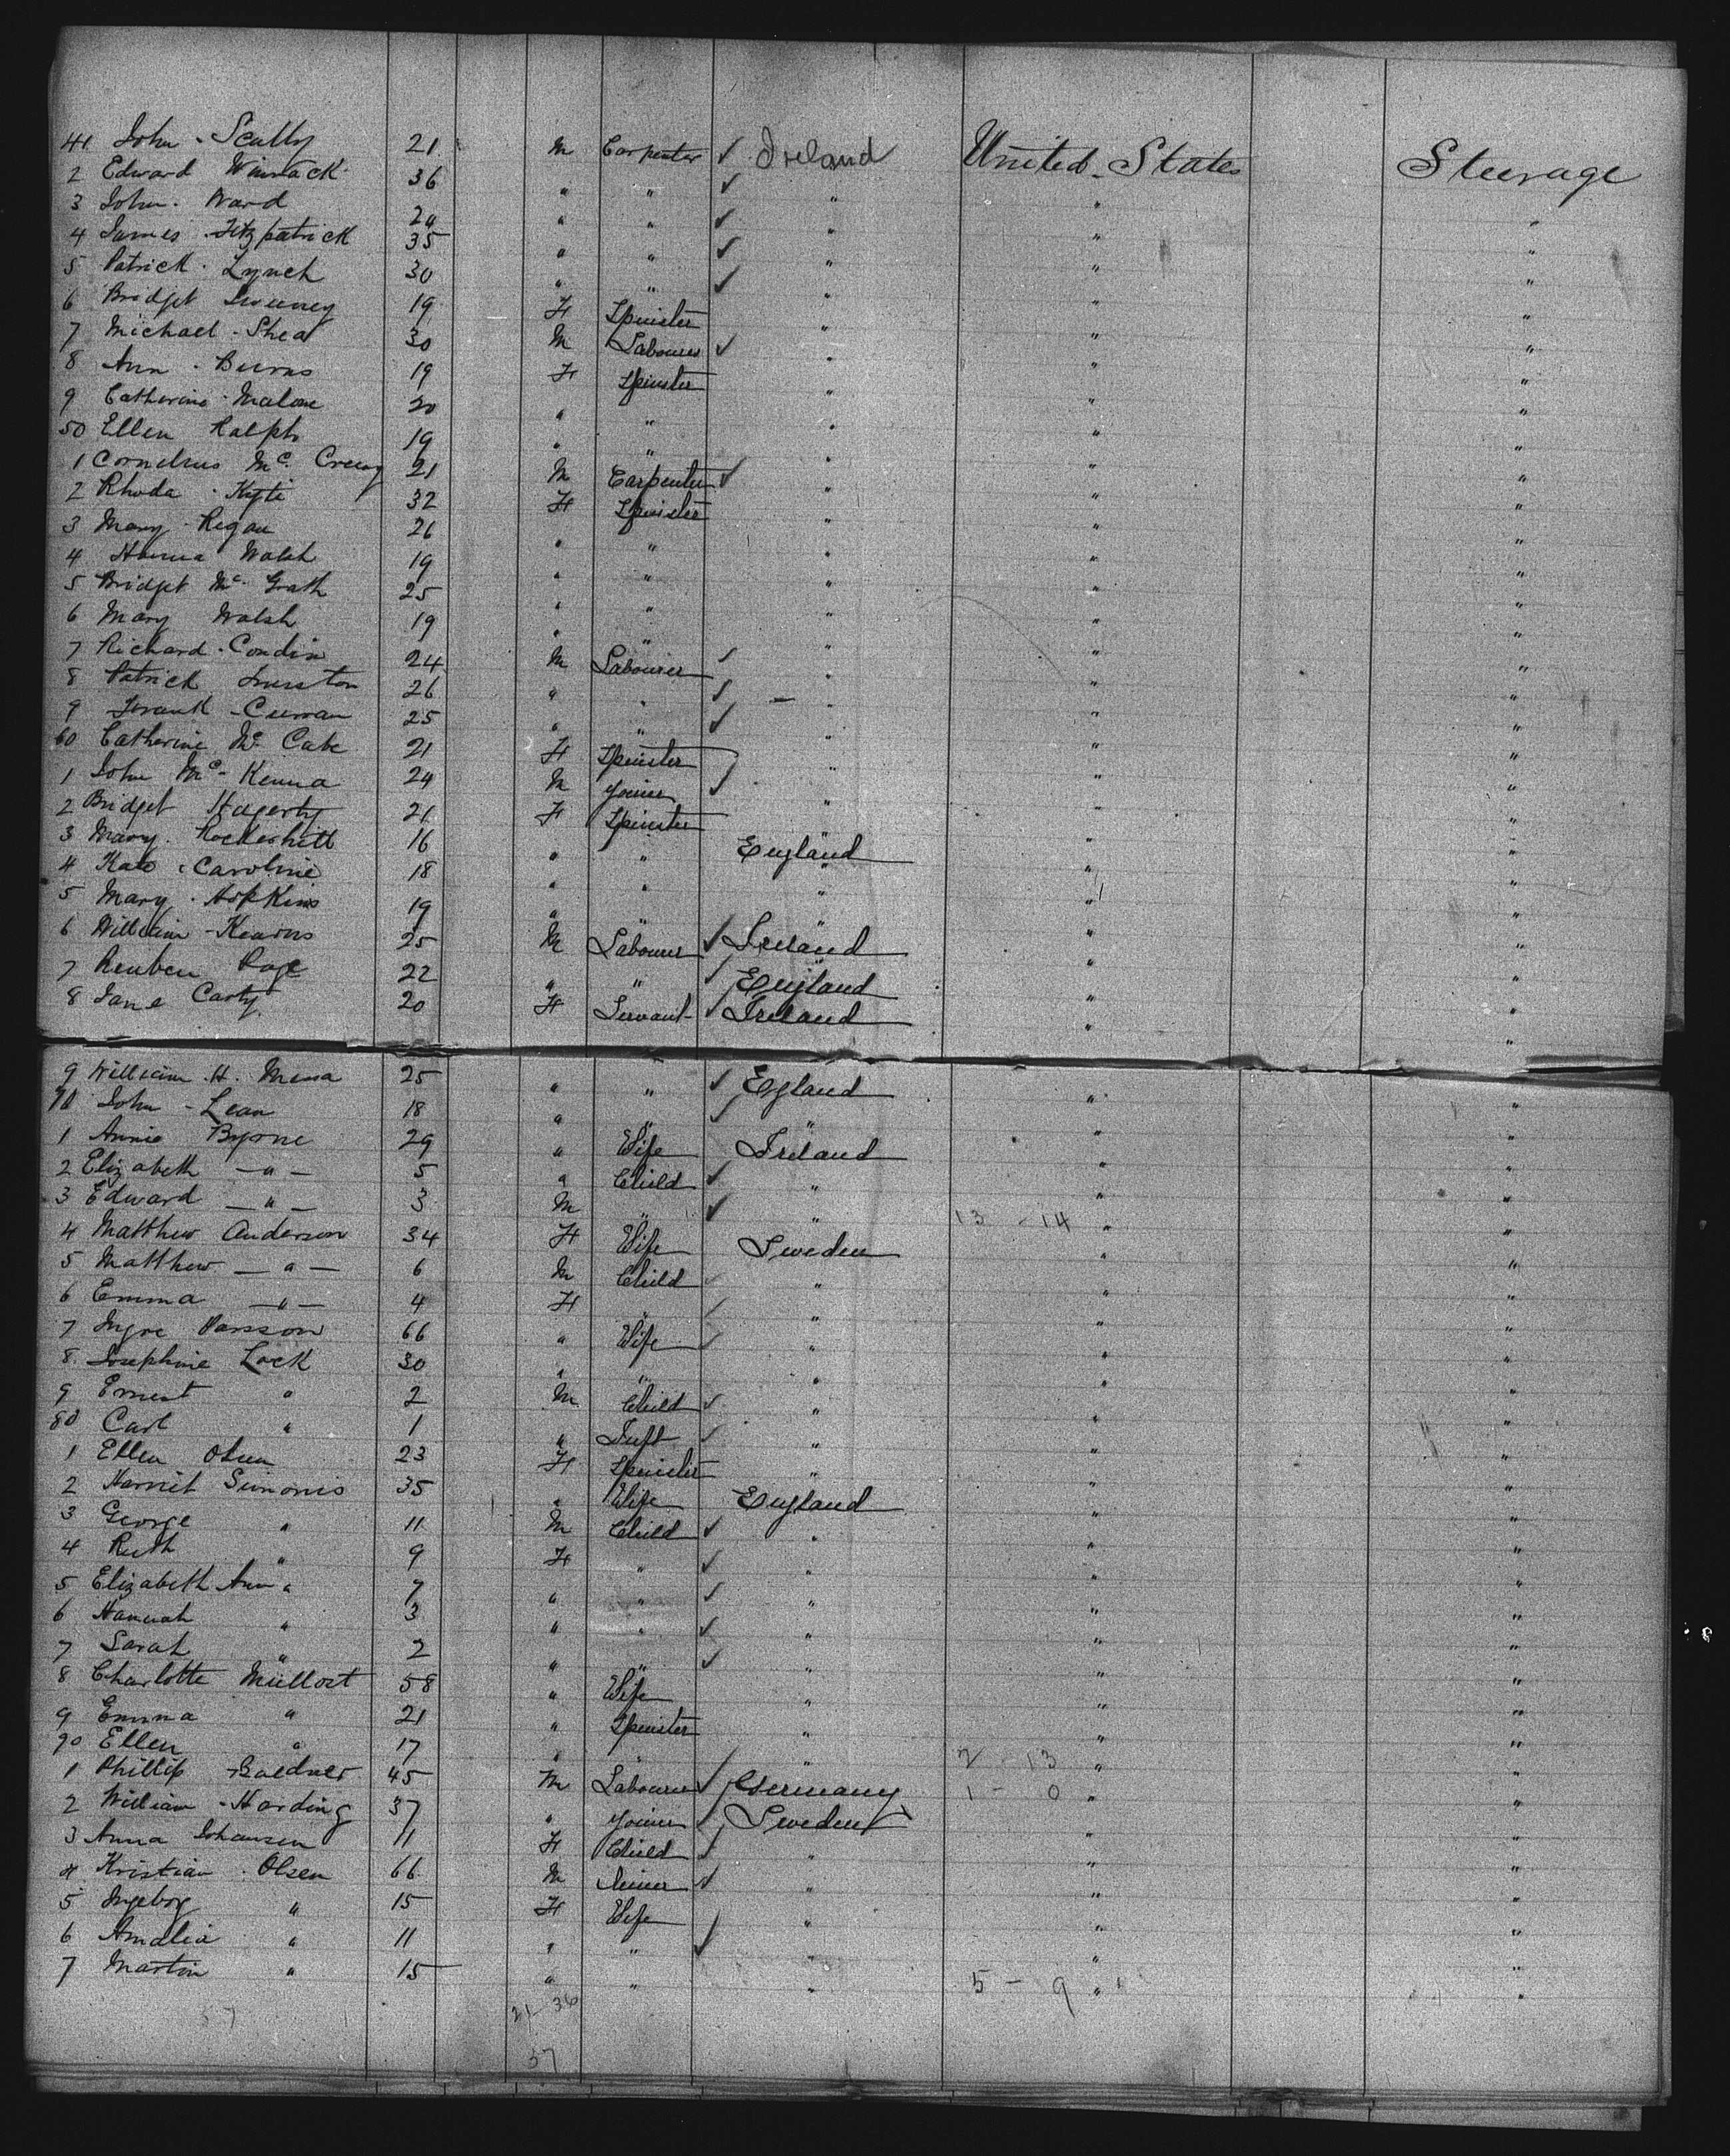 41 John - Scully 21 M Carpenter ✓ Ireland United States Steerage
2 Edward 36 " " ✓ " " "
3 John. Ward " " ✓ " " "
4 James Fitzpatrick 35 " " ✓ " " "
5 Patrick. Lynch 30 " " ✓ " " "
6 Bridget Sweeney 19 F Spinster " " "
7 Michael - Shea 30 M Labourer ✓ " " "
8 Ann - Burns 19 F Spinster " " "
9 Catherine - Malone 20 " " " " "
50 Ellen Ralph 19 " " " " "
1 Cornelius Mc. 21 M Carpenter ✓ " " "
2 Rhoda 32 F Spinster " " "
3 Mary - Regan 26 " " " " "
4 Hanna Walsh 19 " " " " "
5 Bridget Mc. Grath 25 " " " " "
6 Mary Walsh 19 " " " " "
7 Richard - Condin 24 M Labourer ✓ " " "
8 Patrick 26 " " ✓ " " "
9 Frank - Curran 25 " " ✓ " " "
60 Catherine Mc. Cabe 21 F Spinster " " "
1 John Mc. Kenna 24 M Joiner ✓ " " "
2 Bridget Hagerty 21 F Spinster " " "
3 Mary. 16 " " England " "
4 Kate - Caroline 18 " " " " "
5 Mary - Hopkins 19 " " " " "
6 William - Kearns 25 M Labourer ✓ Ireland " "
7 Reuben 22 " " ✓ England " "
8 Jane Carty 20 F Servant ✓ Ireland " "
9 William. H. 25 " " ✓ England " "
70 John - Lean 18 " " ✓ " " "
1 Annie Byrne 29 " Wife Ireland " "
2 Elizabeth - " - 5 " Child ✓ " " "
3 Edward - " - 3 M " ✓ " 13 - 14 " "
4 Matthew Anderson 34 F Wife Sweden " "
5 Matthew - " - 6 M Child ✓ " " "
6 Emma - " - 4 F " ✓ " " "
7 66 " Wife ✓ " " "
8 Josephine Lock 30 " " " " "
9 Ernest " 2 M Child ✓ " " "
80 Carl " 1 " Inft ✓ " " "
1 Ellen Olsen 23 F Spinster " " "
2 Harriet Simonis 35 " Wife England " "
3 George " 11 M Child ✓ " " "
4 Ruth " 9 F " ✓ " " "
5 Elizabeth Ann " 7 " " ✓ " " "
6 Hannah " 3 " " ✓ " " "
7 Sarah " 2 " " ✓ " " "
8 Charlotte 58 " Wife " " "
9 Emma " 21 " Spinster " " "
90 Ellen " 17 " " " 2 - 13 " "
1 Phillip 45 M Labourer ✓ Germany 1 - 0 " "
2 William - Harding 37 " Joiner ✓ Sweden " "
3 Anna Johansen 11 F Child ✓ " " "
4 Kristian. Olsen 66 M ✓ " " "
5 Ingeborg " 15 F Wife " " "
6 Amalia " 11 " " ✓ " " "
7 Martin " 15 " " " 5 - 9 " "
21 - 36
37 57